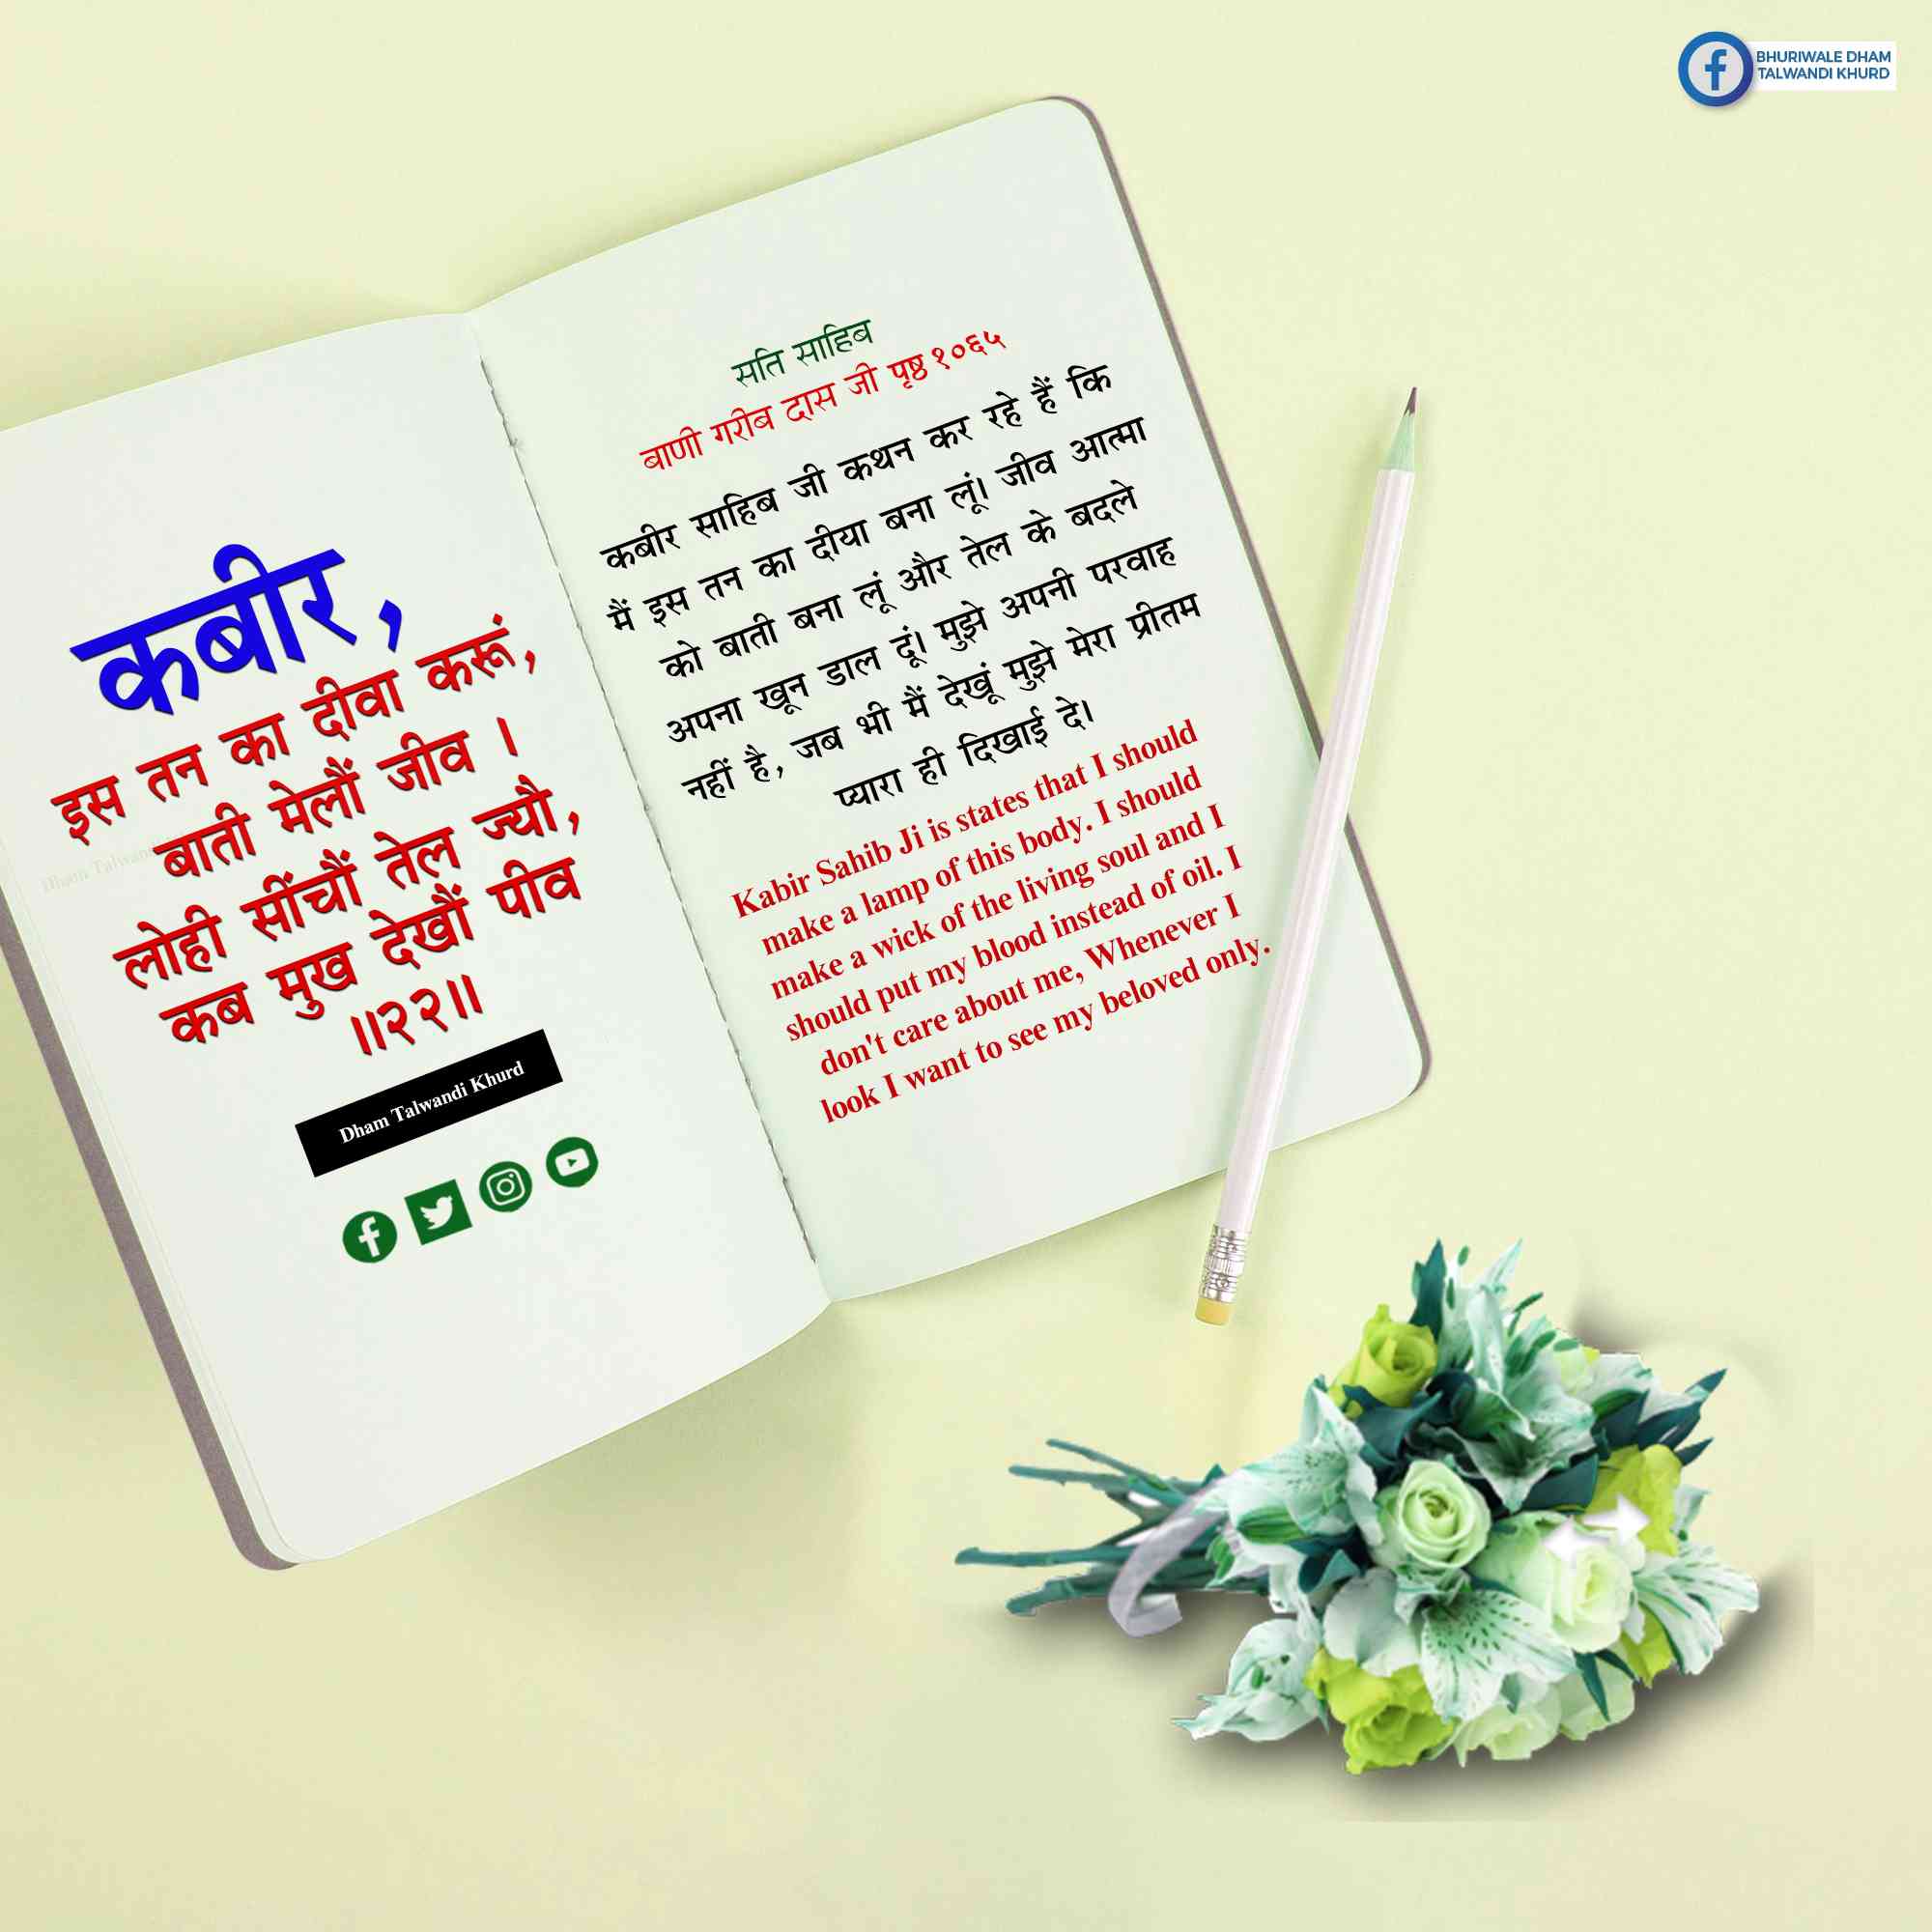 BHURIWALE DHAM
TALWANDI KHURD
कबीर,
इस तन का दीवा करूं,
बाती मेलौं जीव ।
लोही सींचौं तेल ज्यौ,
कब मुख देखौं पीव
॥२२॥
Dham Talwandi Khurd
सति साहिब
बाणी गरीब दास जी पृष्ठ १०६५
कबीर साहिब जी कथन कर रहे हैं कि
मैं इस तन का दीया बना लूं। जीव आत्मा
को बाती बना लूं और तेल के बदले
अपना खून डाल दूं। मुझे अपनी परवाह
नहीं है, जब भी मैं देखूं मुझे मेरा प्रीतम
प्यारा ही दिखाई दे।
Kabir Sahib Ji is states that I should
make a lamp of this body. I should
make a wick of the living soul and I
should put my blood instead of oil. I
don't care about me, Whenever I
look I want to see my beloved only.